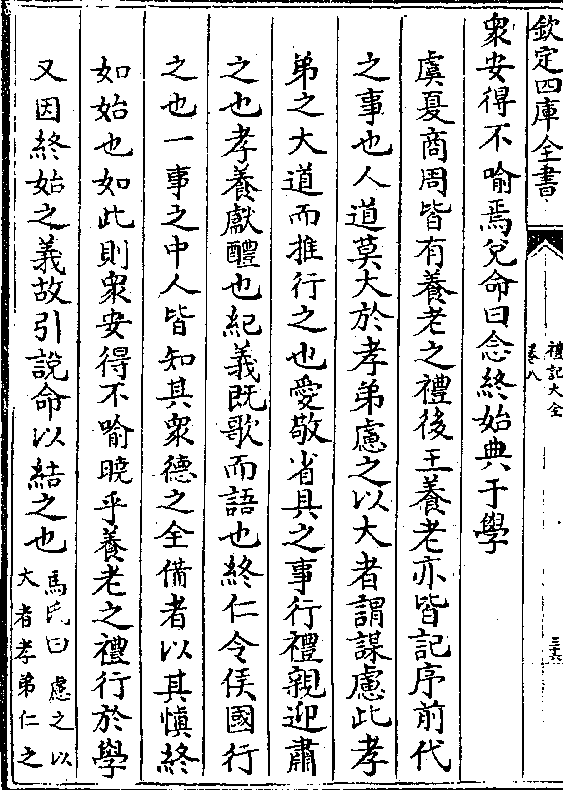 欽定四庫全書
禮記大全
卷八
三十六
衆安得不喻焉兌命曰念終始典于學
虞夏商周皆有養老之禮後王養老亦皆記序前代
之事也人道莫大於孝弟慮之以大者謂謀慮此孝
弟之大道而推行之也愛敬省具之事行禮親迎肅
之也孝養獻醴也紀義既歌而語也終仁令侯國行
之也一事之中人皆知其衆德之全備者以其愼終
如始也如此則衆安得不喻曉乎養老之禮行於學
又因終始之義故引說命以結之也
馬氏曰慮之以
大者孝弟仁之